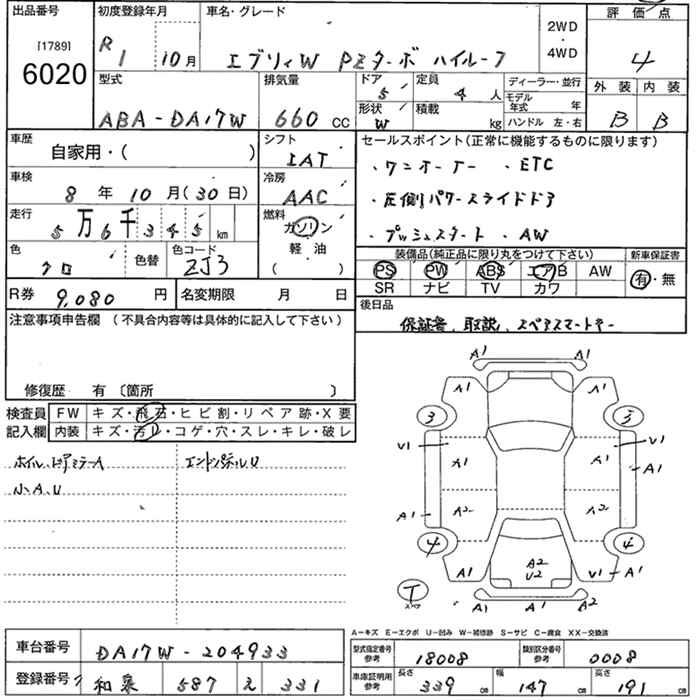 出品番号
[1789]
6020
初度登録年月
R1 10月
車名・グレード
エブリィW PZターボ ハイルーフ
2WD
・
4WD
評価点
4
外装 内装
B B
型式
ABA-DA17W
排気量
660 CC
ドア
5
形状
W
定員
4 人
積載
kg
ディーラー・並行
モデル年式 年
ハンドル 左・右
車歴
自家用・( )
シフト
IAT
車検
8年10月(30日)
冷房
AAC
走行
5万6千345km
燃料
ガソリン
・
軽油
( )
色
クロ
色替
色コード
ZJ3
セールスポイント(正常に機能するものに限ります)
・ワンオーナー ・ETC
・左側パワースライドドア
・プッシュスタート ・AW
装備品(純正品に限り丸をつけて下さい)
PS PW ABS エアB AW
SR ナビ TV カワ
新車保証書
有・無
R券 9,080円
名変期限 月 日
後日品
保証書、取説、スペアスマートキー
注意事項申告欄(不具合内容等は具体的に記入して下さい)
修復歴 有〔箇所 〕
検査員
記入欄
FW キズ・飛石・ヒビ割・リペア跡・X要
内装 キズ・汚レ・コゲ・穴・スレ・キレ・破レ
ホイル、ドアミラーA
小A、U
エンドパネルU
A1 A1
A1 A1
3 3
V1 V1
A1 A1
A1
A2 A2
A1
4 4
A2
U2
A1 V1 A1
T
スペア
A1 A1 A2
A-キズ E-エクボ U-凹み W-補修跡 S-サビ C-腐食 XX-交換済
車台番号 DA17W-204933
型式指定番号 参考 18008
類別区分番号 参考 0008
登録番号 和泉 587 え 331
車庫証明用 参考
長さ 339cm
幅 147cm
高さ 191cm